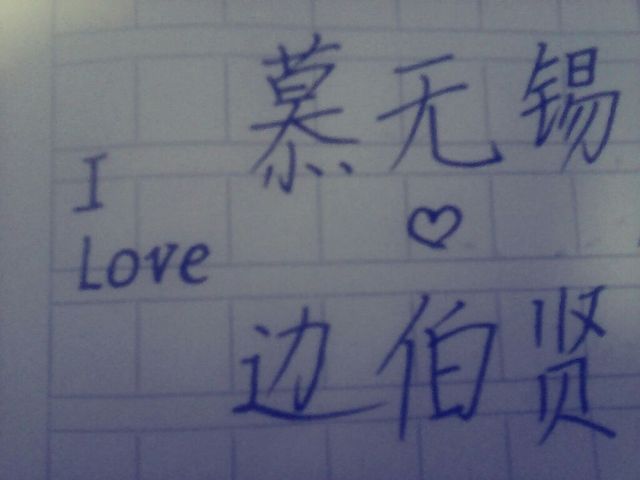 慕无锡
I
Love
♡
边伯贤